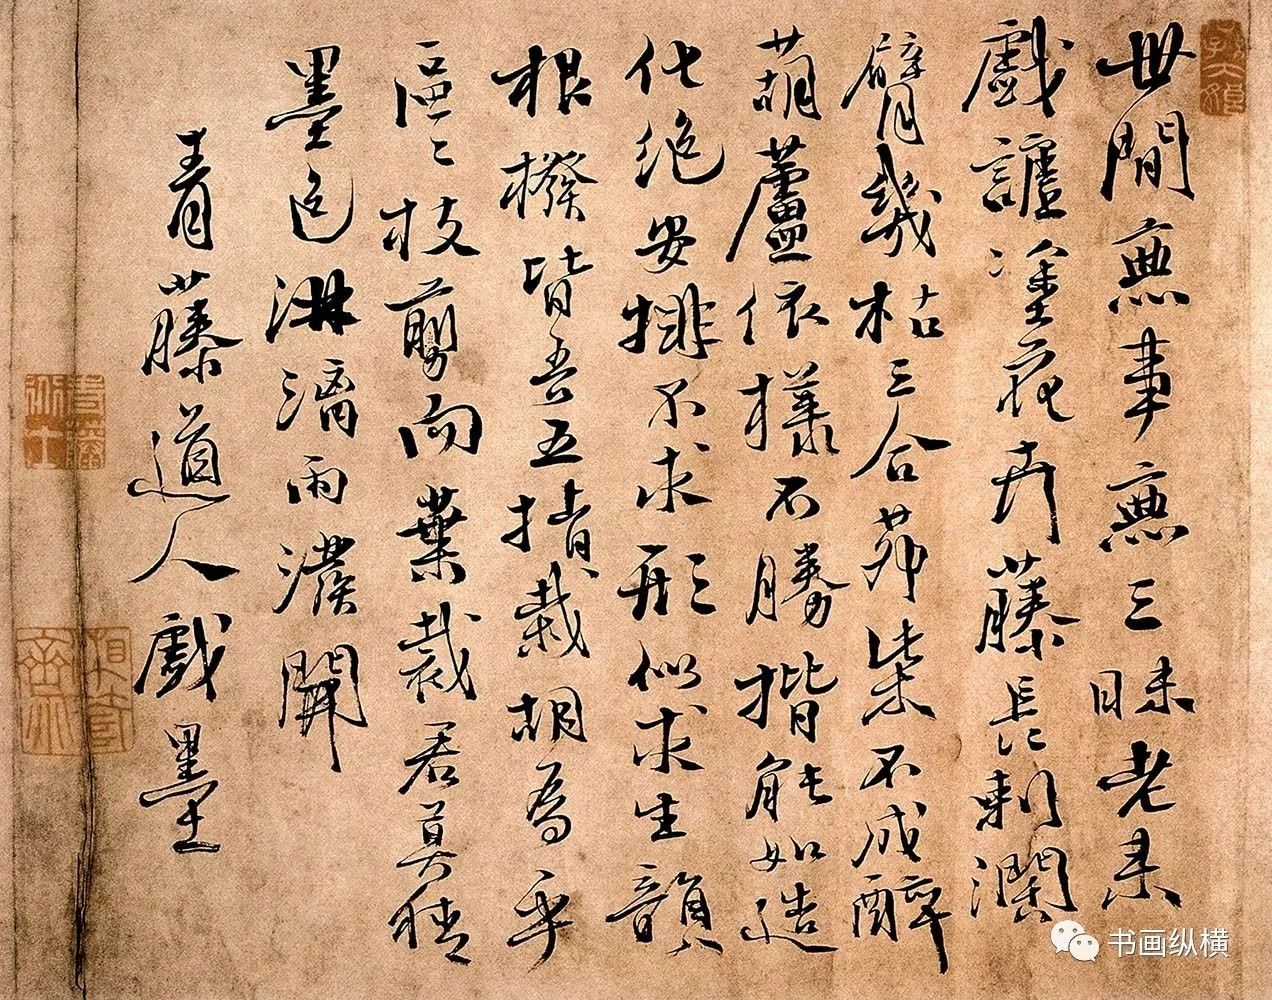 世間無事無三昧老來
戲謔塗花卉藤長刺濶
臂幾枯三合茅柴不成醉
葫蘆依樣不勝揩能如造
化絕安排不求形似求生韻
根撥皆吾五指栽胡為乎
區〻枝剪向葉裁君莫猜
墨色淋漓雨潑開
青藤道人戲墨
书画纵横